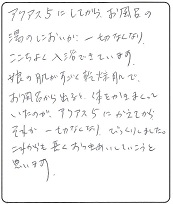 アクアス5にしてから、お風呂の
湯のにおいが、一切なくなり、
ここちよく入浴できています。
娘の肌がすごく乾燥肌で、
お風呂から出ると、体をかきまくって
いたのが、アクアス5にかえてから
それが一切なくなり、びっくりしました。
これからも長くおつきあいしていこうと
思います。